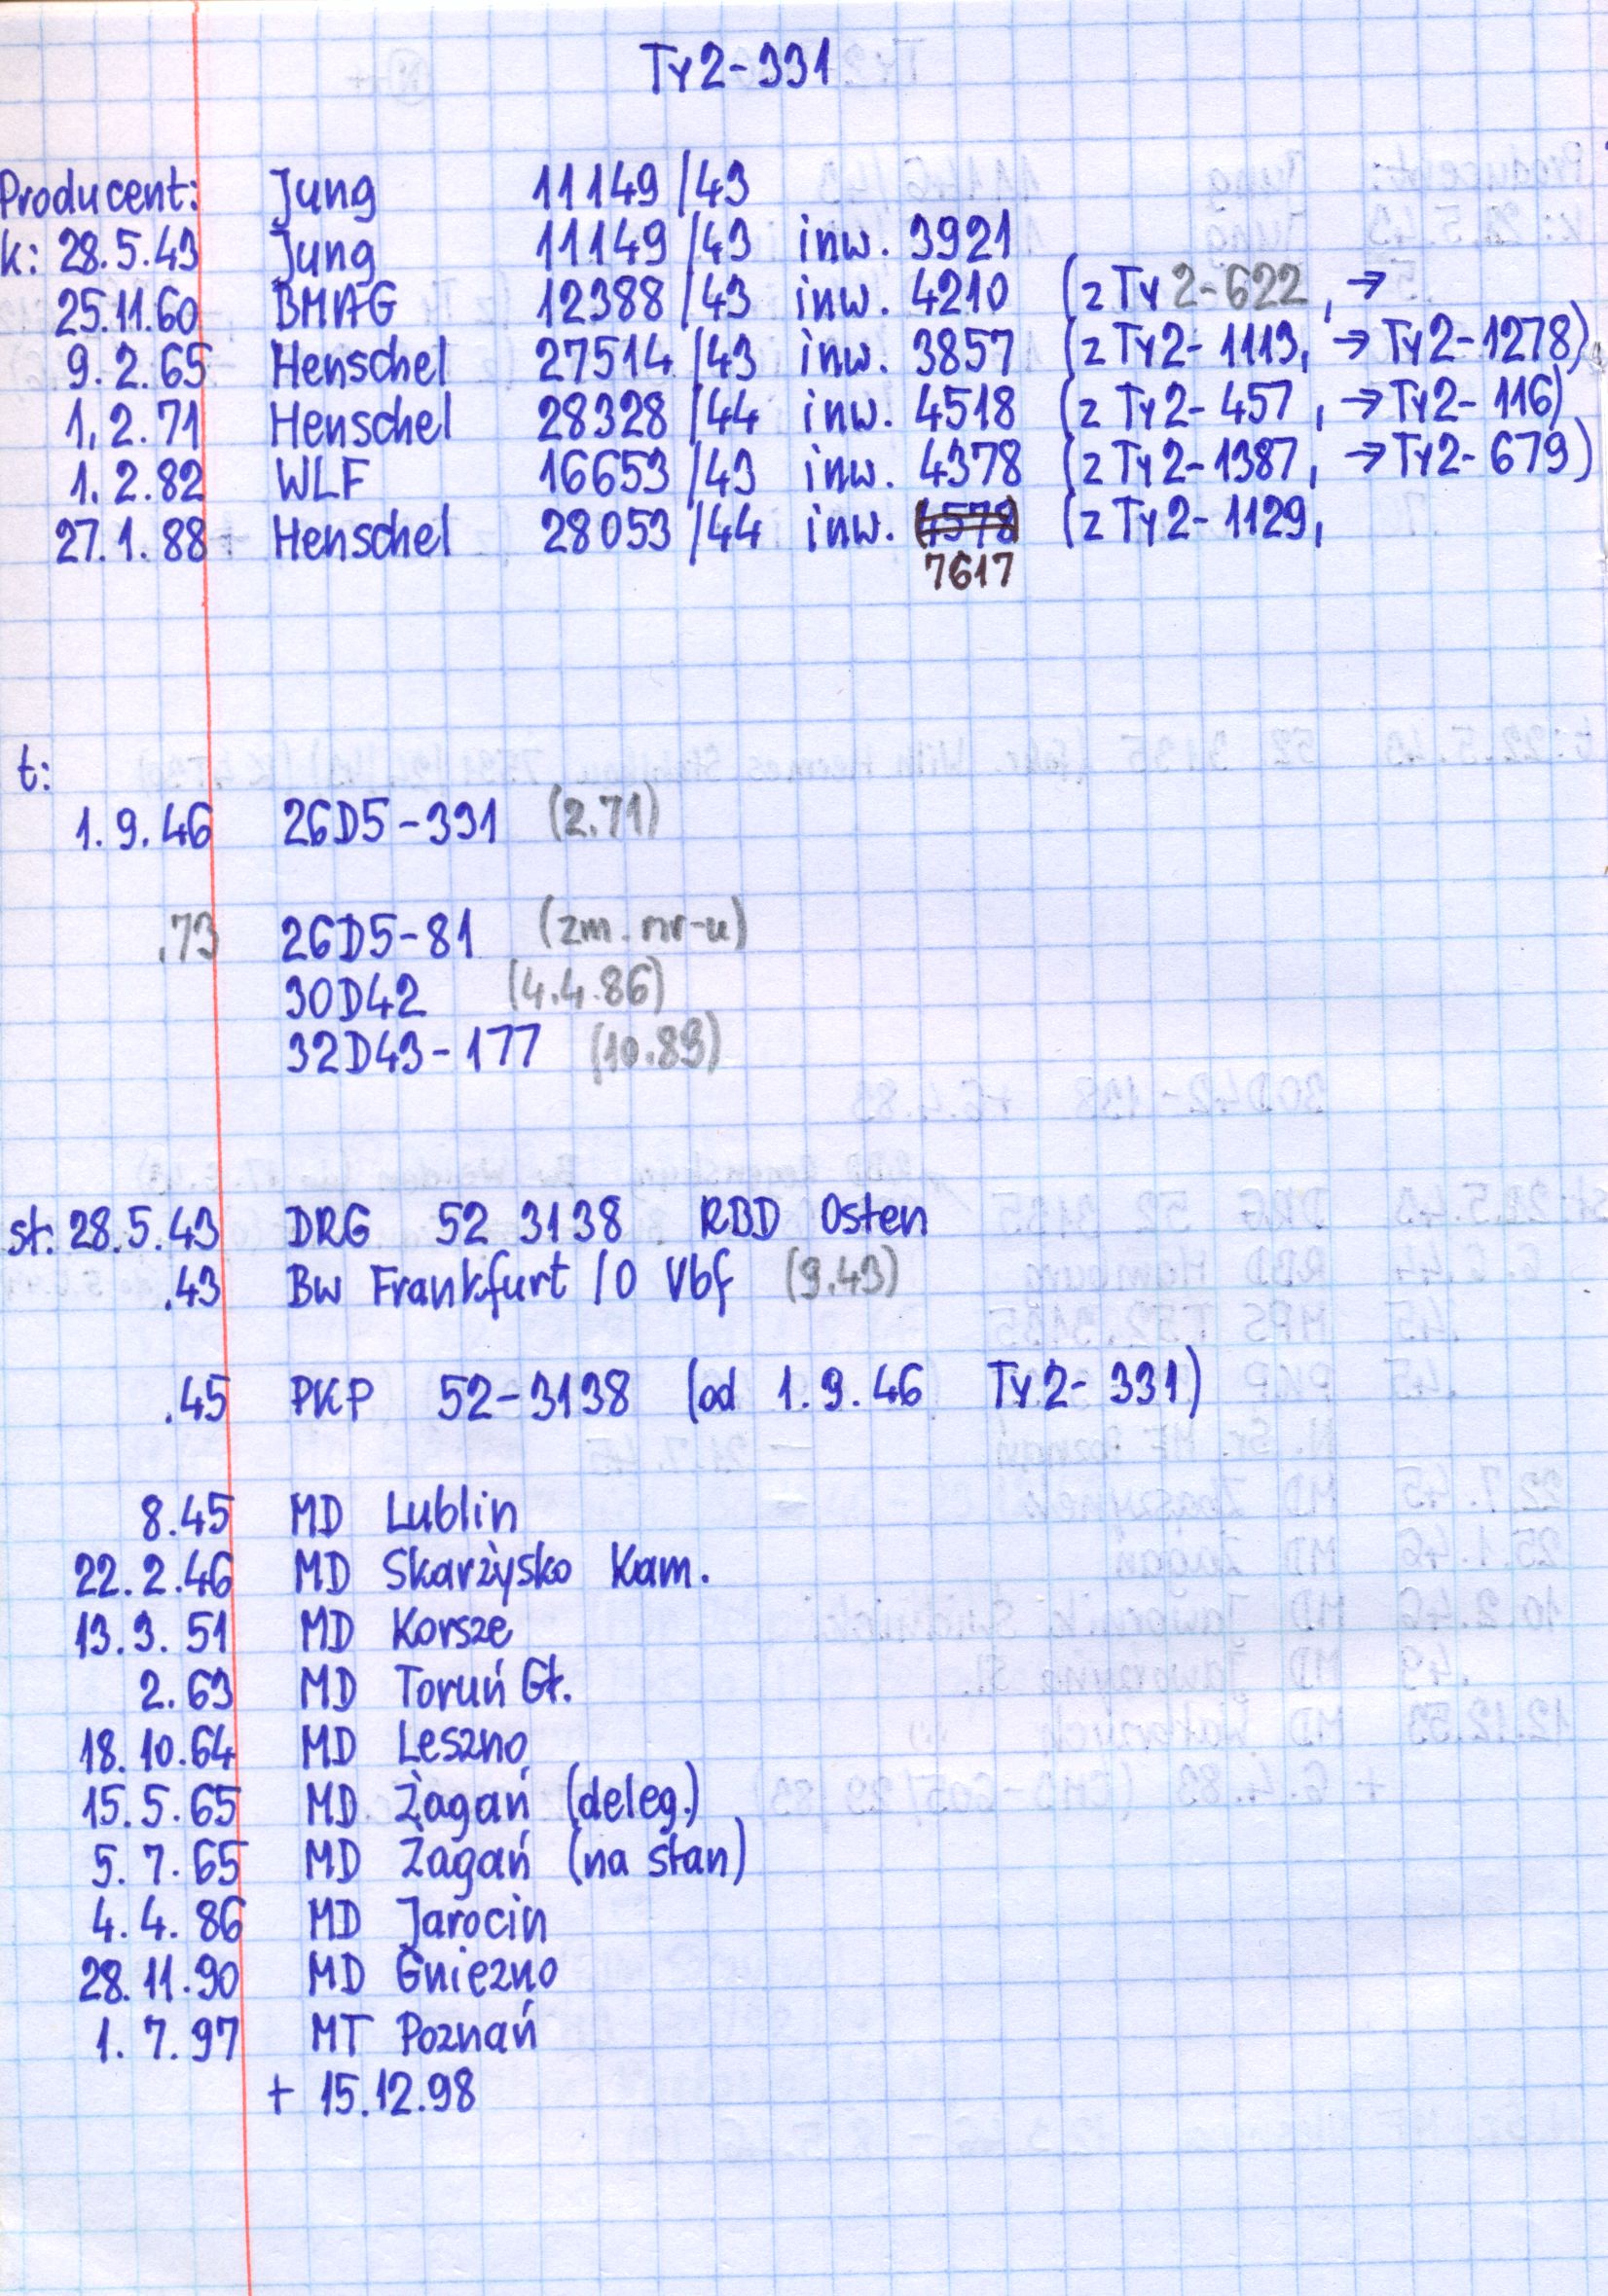 Ty2-331
Producent: Jung 11149/43
k: 28.5.43 Jung 11149/43 inw. 3921
25.11.60 BMAG 12388/43 inw. 4210 (z Ty2-622, →
9.2.65 Henschel 27514/43 inw. 3857 (z Ty2-1113, → Ty2-1278)
1.2.71 Henschel 28328/44 inw. 4518 (z Ty2-457, → Ty2-116)
1.2.82 WLF 16653/43 inw. 4378 (z Ty2-1387, → Ty2-679)
27.1.88 Henschel 28053/44 inw. 4578 (z Ty2-1129,
7617
t:
1.9.46 26D5-331 (2.71)
.73 26D5-81 (zm. nr-u)
30D42 (4.4.86)
32D43-177 (10.83)
st: 28.5.43 DRG 52 3138 RBD Osten
.43 Bw Frankfurt/O Vbf (9.43)
.45 PKP 52-3138 (od 1.9.46 Ty2-331)
8.45 MD Lublin
22.2.46 MD Skarżysko Kam.
13.3.51 MD Korsze
2.63 MD Toruń Gł.
18.10.64 MD Leszno
15.5.65 MD Żagań (deleg.)
5.7.65 MD Żagań (na stan)
4.4.86 MD Jarocin
28.11.90 MD Gniezno
1.7.97 MT Poznań
+ 15.12.98